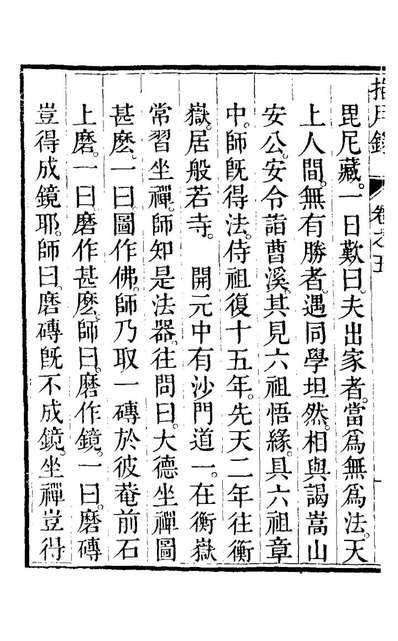 指月錄 卷之五
毘尼藏。一日歎曰。夫出家者。當為無為法。天
上人間。無有勝者。遇同學坦然。相與謁嵩山
安公。安令詣曹溪。其見六祖悟緣。具六祖章
中。師既得法。侍祖復十五年。先天二年往衡
嶽。居般若寺。 開元中有沙門道一。在衡嶽
常習坐禪。師知是法器。往問曰。大德坐禪圖
甚麼。一曰圖作佛。師乃取一磚於彼菴前石
上磨。一曰磨作甚麼。師曰。磨作鏡。一曰。磨磚
豈得成鏡耶。師曰。磨磚既不成鏡。坐禪豈得